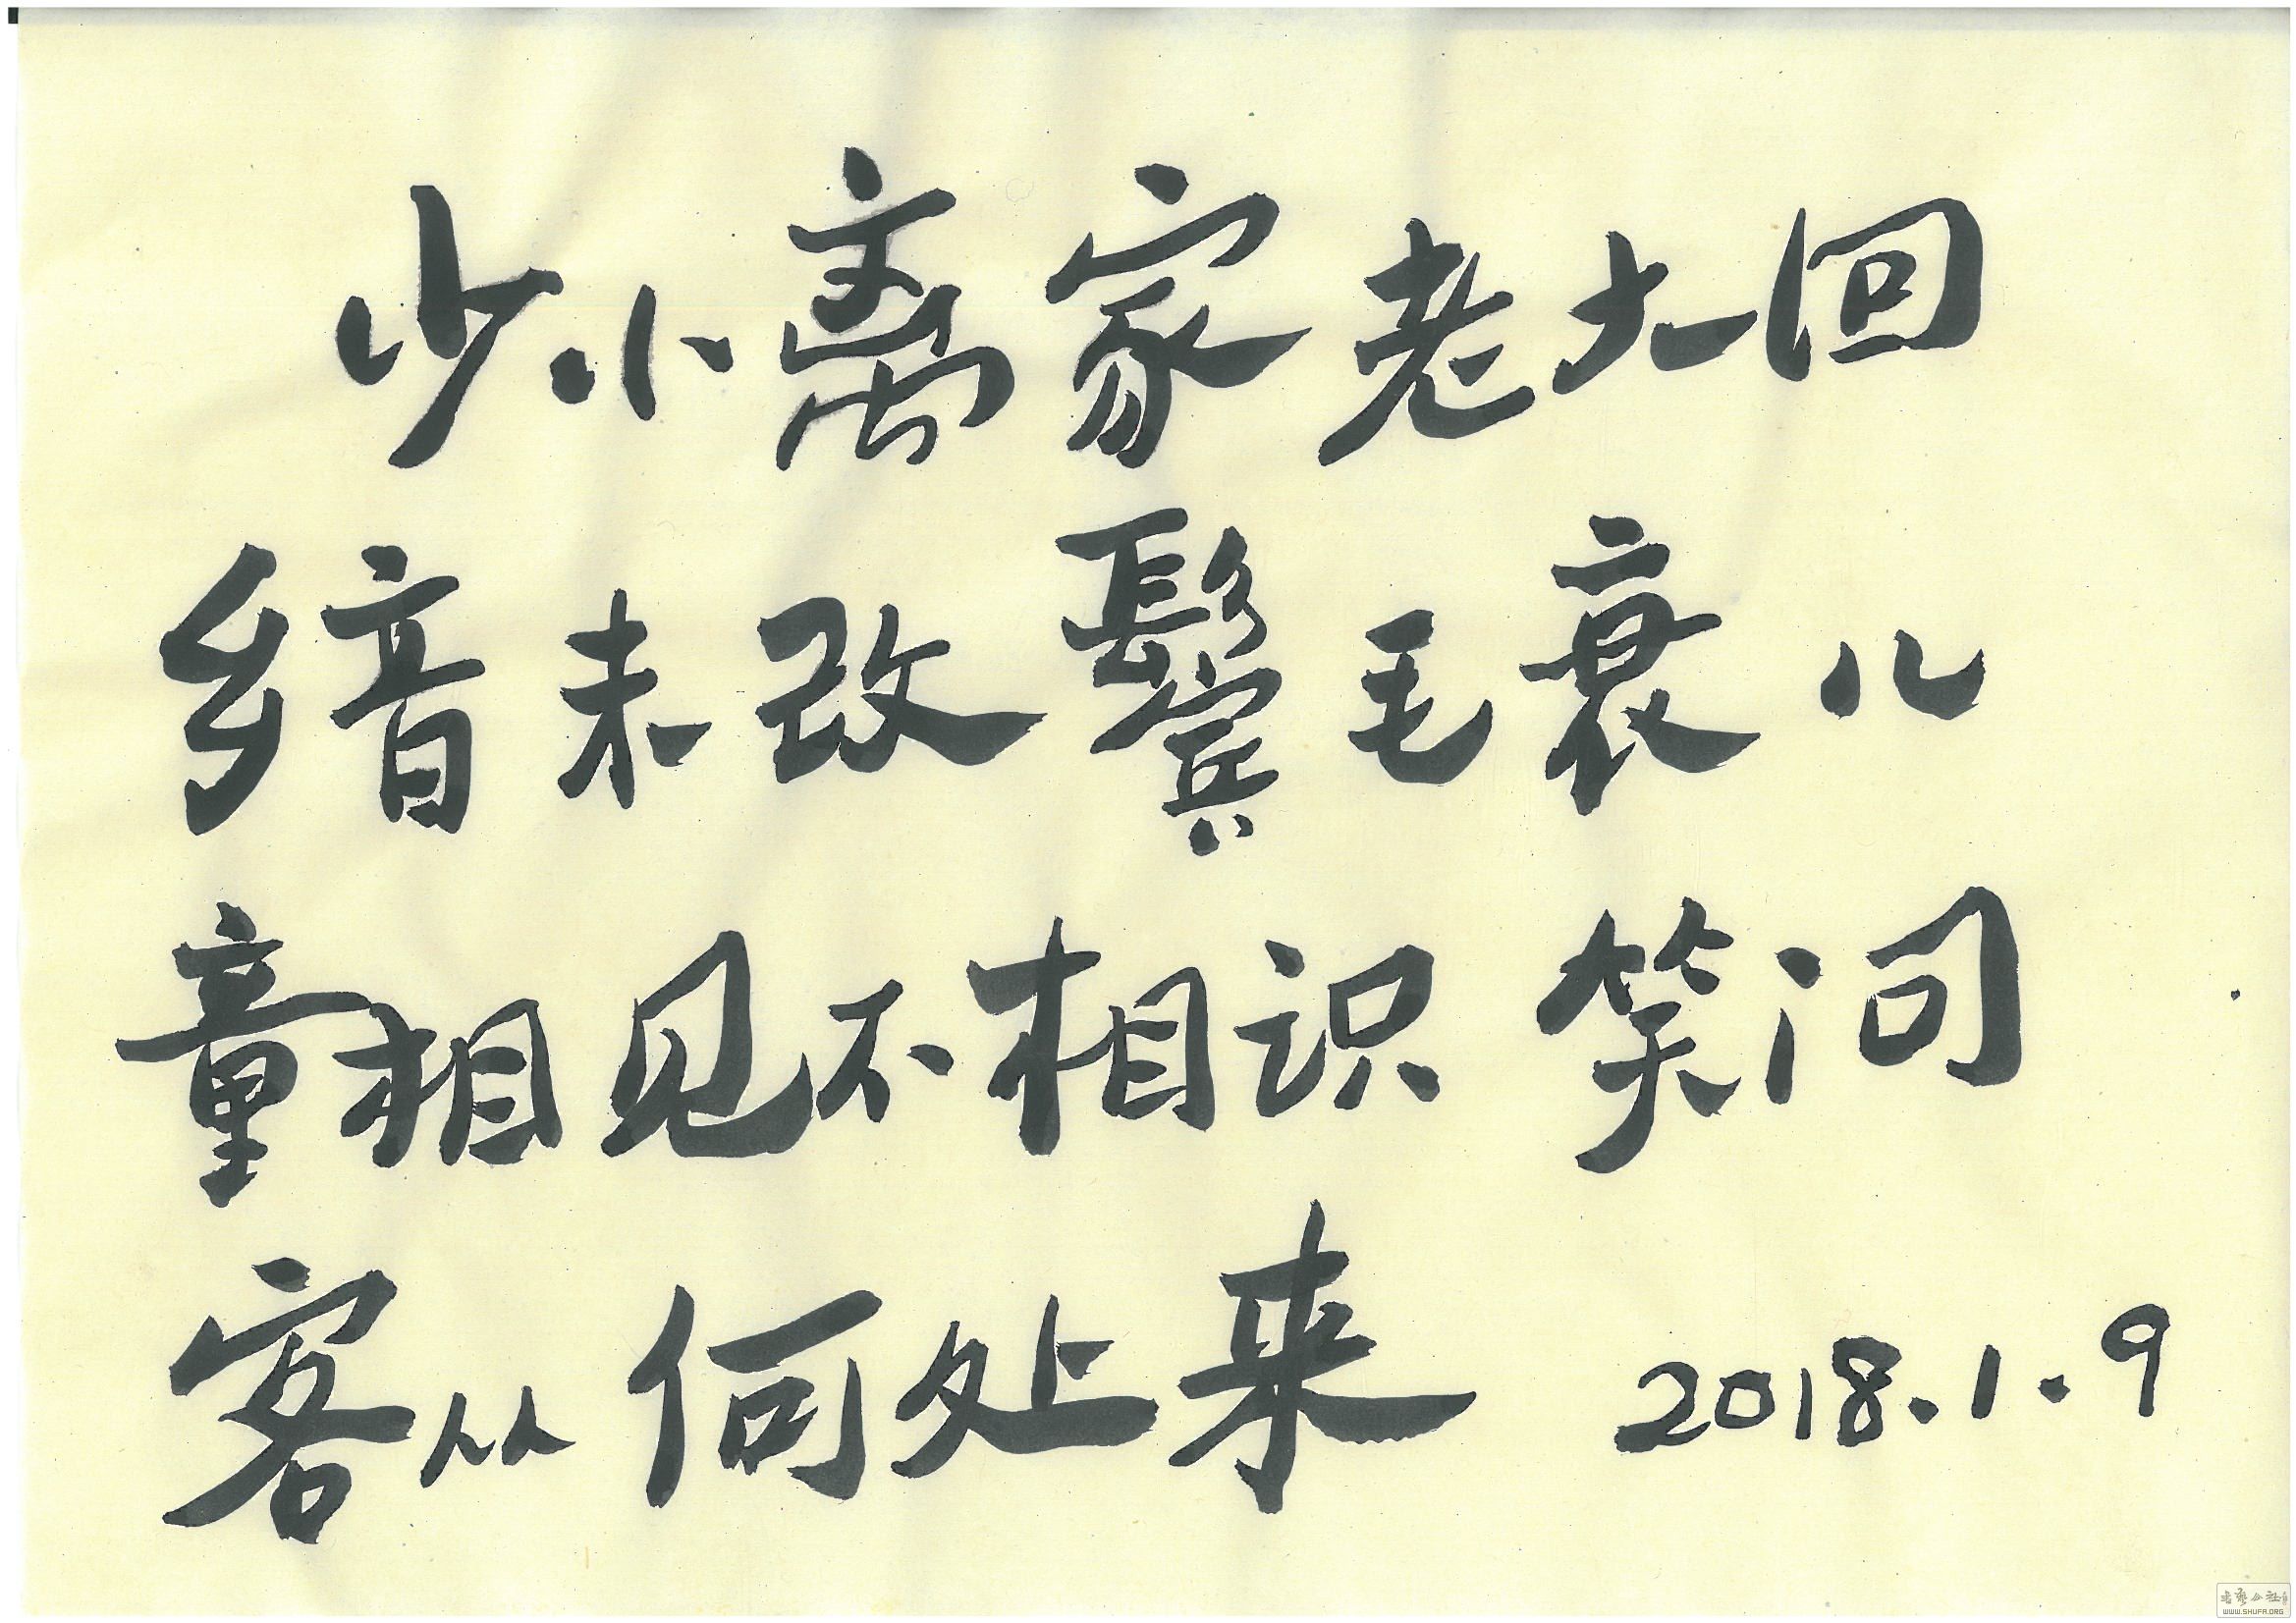 少小离家老大回
乡音未改鬓毛衰儿
童相见不相识笑问
客从何处来 2018.1.9
WWW.SHUFA.ORG